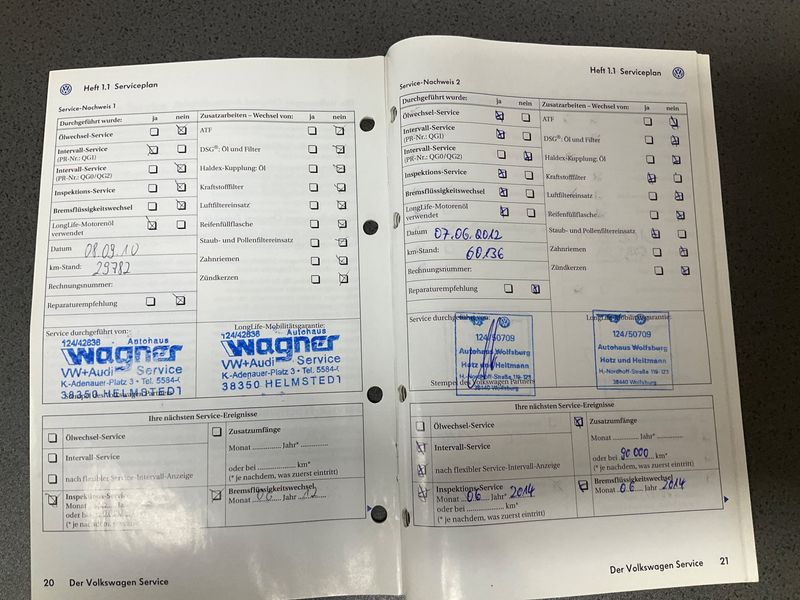 Heft 1.1 Serviceplan
Service-Nachweis 1
Durchgeführt wurde: ja nein
Ölwechsel-Service
Intervall-Service
(PR-Nr.: QG1)
Intervall-Service
(PR-Nr.: QG0/QG2)
Inspektions-Service
Bremsflüssigkeitswechsel
LongLife-Motorenöl
verwendet
Datum 08.09.10
km-Stand: 29782
Rechnungsnummer:
Reparaturempfehlung
Zusatzarbeiten – Wechsel von: ja nein
ATF
DSG®: Öl und Filter
Haldex-Kupplung: Öl
Kraftstofffilter
Luftfiltereinsatz
Reifenfüllflasche
Staub- und Pollenfiltereinsatz
Zahnriemen
Zündkerzen
Service durchgeführt von:
124/42836 Autohaus
Wagner
VW+Audi Service
K.-Adenauer-Platz 3 • Tel. 5584-0
38350 HELMSTEDT
LongLife-Mobilitätsgarantie:
124/42836 Autohaus
Wagner
VW+Audi Service
K.-Adenauer-Platz 3 • Tel. 5584-0
38350 HELMSTEDT
Ihre nächsten Service-Ereignisse
Ölwechsel-Service
Intervall-Service
nach flexibler Service-Intervall-Anzeige
Inspektions-Service
Monat
oder bei
(* je nachdem, was zuerst eintritt)
Zusatzumfänge
Monat ............ Jahr* ............
oder bei ............ km*
(* je nachdem, was zuerst eintritt)
Bremsflüssigkeitswechsel
Monat 06 Jahr 12
20 Der Volkswagen Service
Heft 1.1 Serviceplan
Service-Nachweis 2
Durchgeführt wurde: ja nein
Ölwechsel-Service
Intervall-Service
(PR-Nr.: QG1)
Intervall-Service
(PR-Nr.: QG0/QG2)
Inspektions-Service
Bremsflüssigkeitswechsel
LongLife-Motorenöl
verwendet
Datum 07.06.2012
km-Stand: 60136
Rechnungsnummer:
Reparaturempfehlung
Zusatzarbeiten – Wechsel von: ja nein
ATF
DSG®: Öl und Filter
Haldex-Kupplung: Öl
Kraftstofffilter
Luftfiltereinsatz
Reifenfüllflasche
Staub- und Pollenfiltereinsatz
Zahnriemen
Zündkerzen
Service durchgeführt
124/50709
Autohaus Wolfsburg
Hotz und Heitmann
H.-Nordhoff-Straße 119-121
38440 Wolfsburg
Stempel des Volkswagen Partners
LongLife-Mobilitätsgarantie:
124/50709
Autohaus Wolfsburg
Hotz und Heitmann
H.-Nordhoff-Straße 119-121
38440 Wolfsburg
Ihre nächsten Service-Ereignisse
Ölwechsel-Service
Intervall-Service
nach flexibler Service-Intervall-Anzeige
Inspektions-Service
Monat 06 Jahr* 2014
oder bei ............ km*
(* je nachdem, was zuerst eintritt)
Zusatzumfänge
Monat ............ Jahr* ............
oder bei 90 000 km*
(* je nachdem, was zuerst eintritt)
Bremsflüssigkeitswechsel
Monat 06 Jahr 2014
Der Volkswagen Service 21